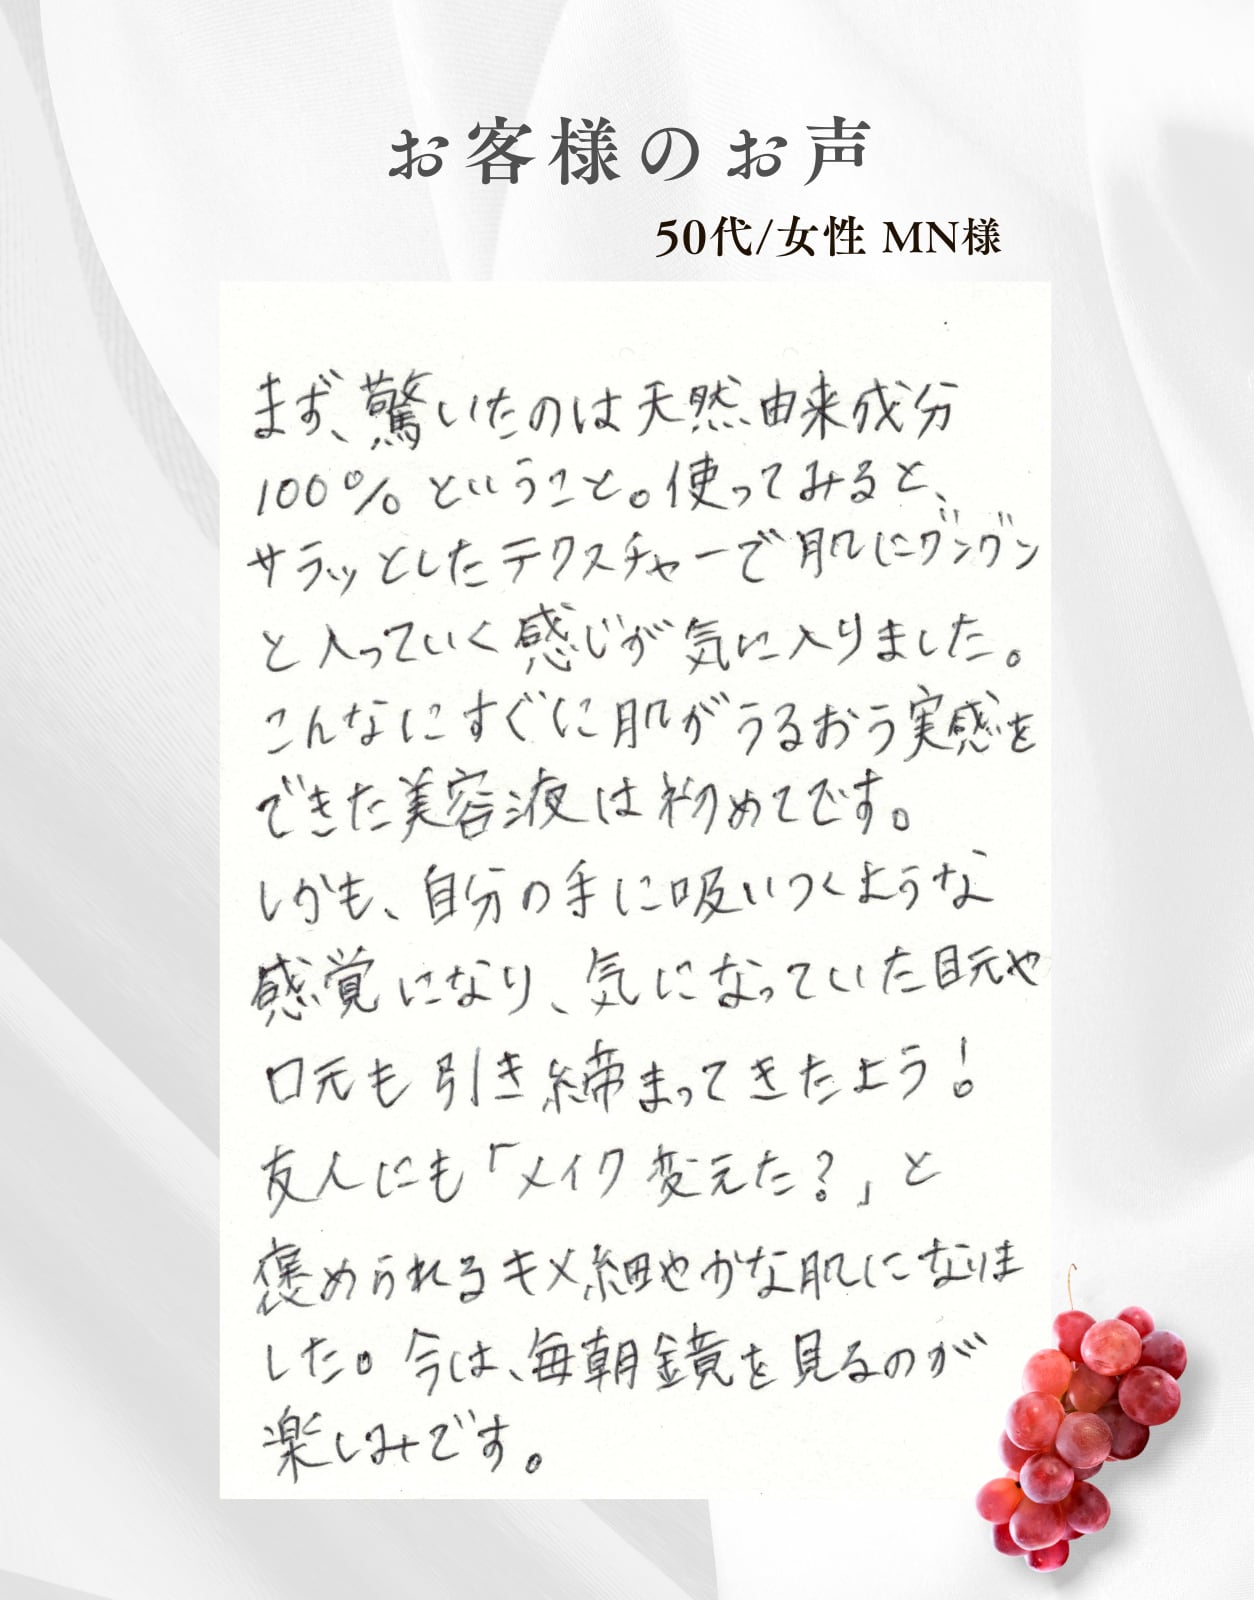 お客様のお声
50代/女性 MN様
まず、驚いたのは天然由来成分
100%ということ。使ってみると、
サラッとしたテクスチャーで肌にグングン
と入っていく感じが気に入りました。
こんなにすぐに肌がうるおう実感を
できた美容液は初めてです。
しかも、自分の手に吸いつくような
感覚になり、気になっていた目元や
口元も引き締まってきたよう!
友人にも「メイク変えた?」と
褒められるキメ細やかな肌になりま
した。今は、毎朝鏡を見るのが
楽しみです。